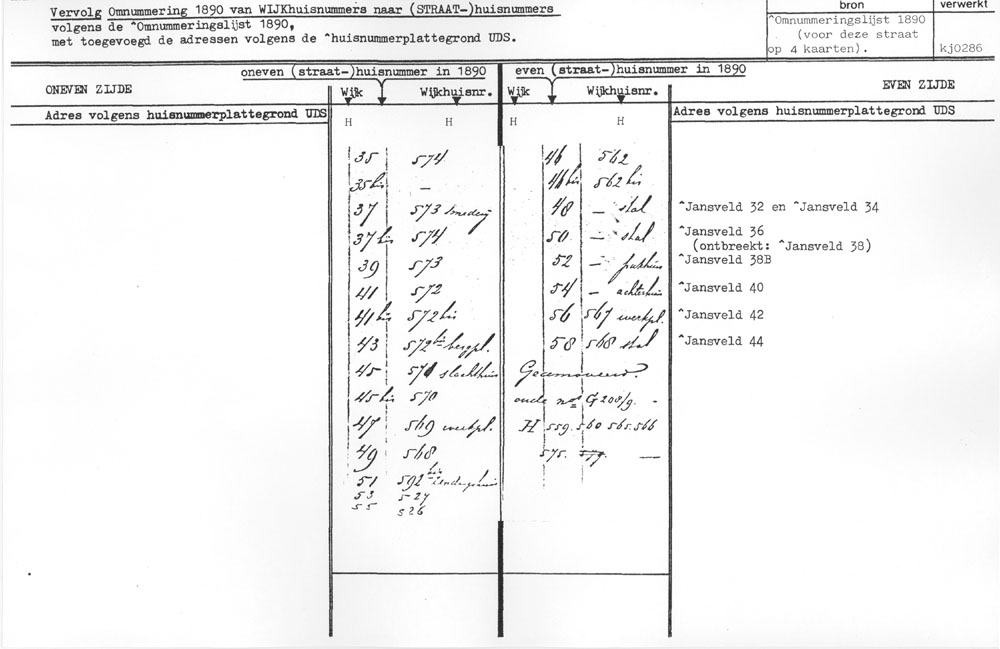 Vervolg Omnummering 1890 van WIJKhuisnummers naar (STRAAT-)huisnummers
volgens de ^Omnummeringslijst 1890,
met toegevoegd de adressen volgens de ^huisnummerplattegrond UDS.
bron
^Omnummeringslijst 1890
(voor deze straat
op 4 kaarten).
verwerkt
kj0286
oneven (straat-)huisnummer in 1890
even (straat-)huisnummer in 1890
ONEVEN ZIJDE
Wijk
Wijkhuisnr.
Wijk
Wijkhuisnr.
EVEN ZIJDE
Adres volgens huisnummerplattegrond UDS
H
H
H
H
Adres volgens huisnummerplattegrond UDS
35 574
35 bis —
37 573 smederij
37 bis 574
39 573
41 572
41 bis 572 bis
43 572 bis bergpl.
45 571 slachthuis
45 bis 570
47 569 werkpl.
49 568
51 592 bis
53 527
55 526
46 562
46 bis 562 bis
48 — stal ^Jansveld 32 en ^Jansveld 34
50 — stal ^Jansveld 36
(ontbreekt: ^Jansveld 38)
52 — pakhuis ^Jansveld 38B
54 — achterhuis ^Jansveld 40
56 567 werkpl. ^Jansveld 42
58 568 stal ^Jansveld 44
Geamoveerd.
oude nos G 208/9. -
H 559. 560 565. 566
575. 577. —